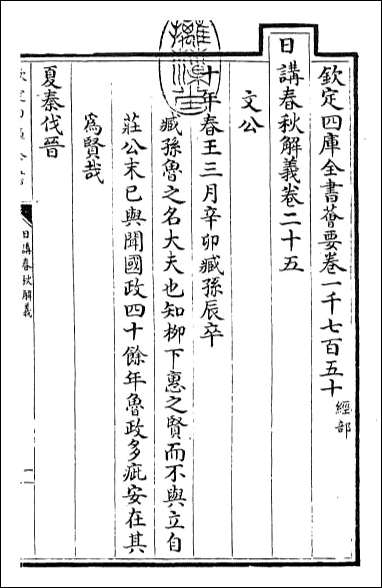 欽定四庫全書薈要卷一千七百五十 經部
日講春秋解義卷二十五
文公
十年春王三月辛卯臧孫辰卒
臧孫魯之名大夫也知栁下惠之賢而不與立自
莊公末已與聞國政四十餘年魯政多疵安在其
為賢哉
夏秦伐晉
日講春秋解義
一